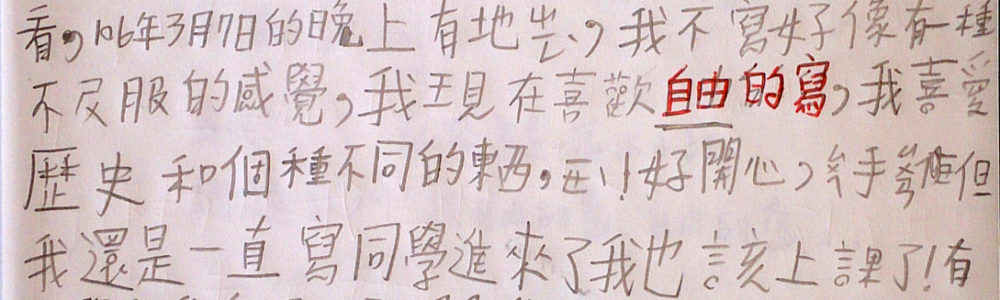 看,106年3月7日的晚上有地,我不寫好像有一種
不反服的感覺,我現在喜歡自由的寫,我喜愛
歷史和個種不同的東西,!好開心,手但
我還是一直寫同學進來了我也該上課了!有